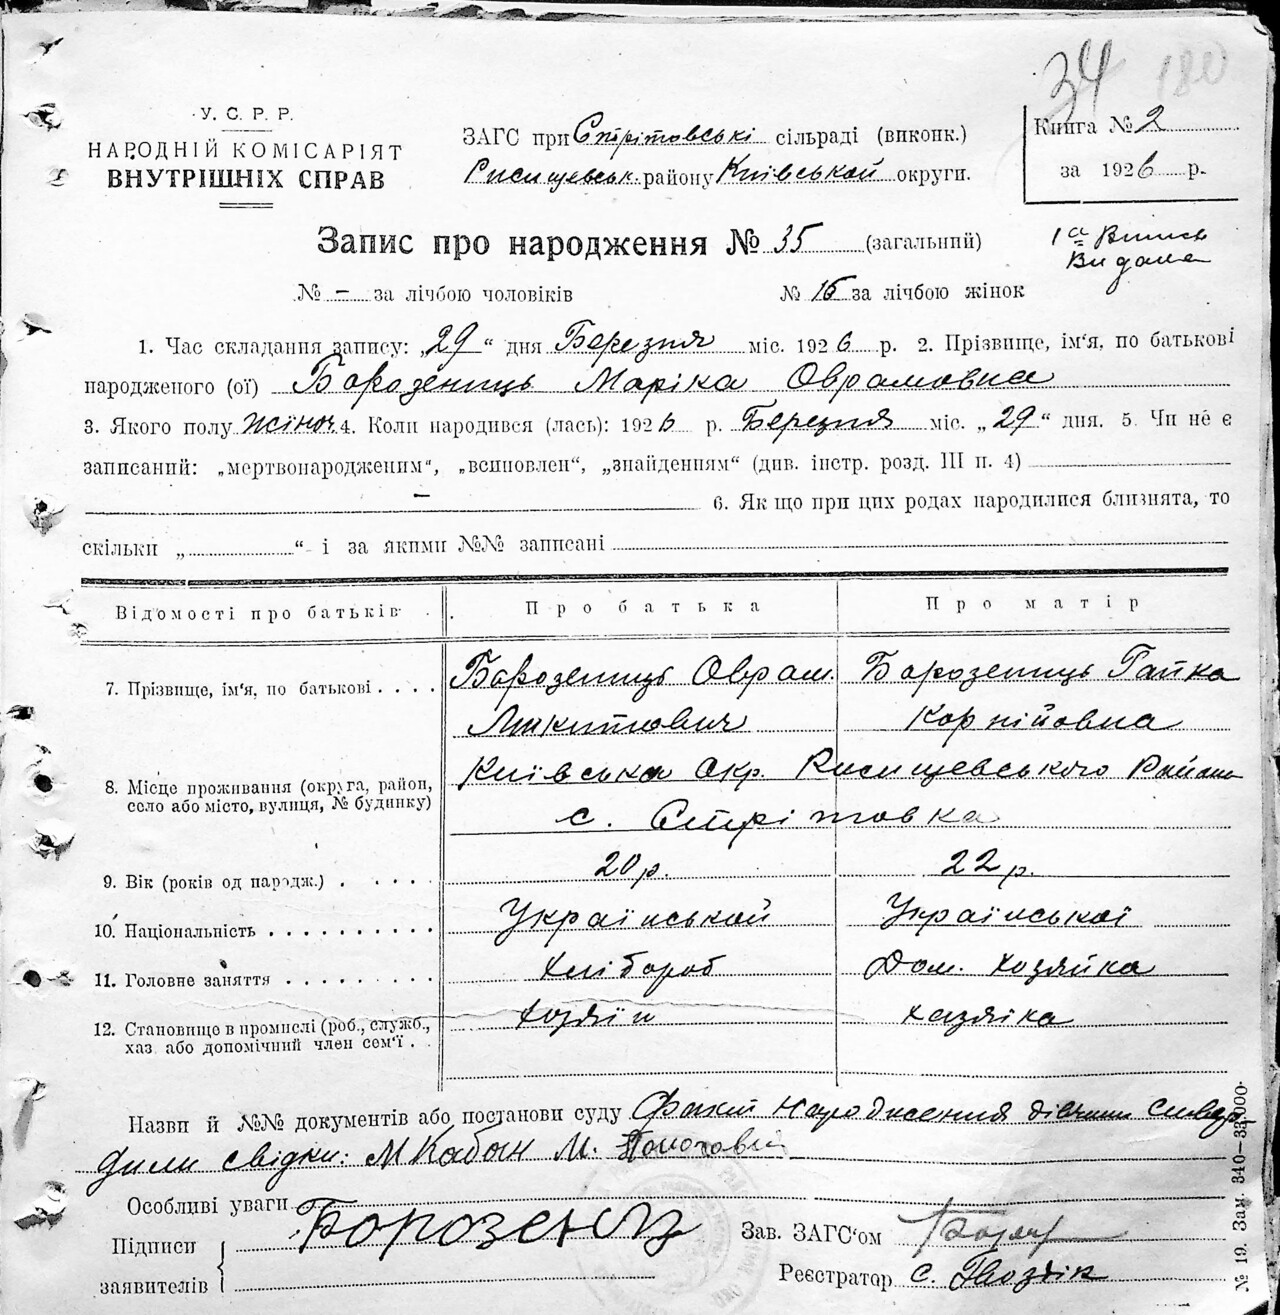 34 180
У. С. Р. Р.
НАРОДНІЙ КОМІСАРІЯТ
ВНУТРІШНІХ СПРАВ
ЗАГС при Стрітовські сільраді (виконк.)
Ржищевськ. району Київської округи.
Книга № 2
за 1926 р.
Запис про народження № 35 (загальний)
1а Випись
Видана
№ – за лічбою чоловіків
№ 16 за лічбою жінок
1. Час складання запису: „29“ дня Березня міс. 1926 р. 2. Прізвище, ім'я, по батькові
народженого (ої) Борозенець Маріка Оврамовна
3. Якого полу жіноч. 4. Коли народився (лась): 1926 р. Березня міс. „29“ дня. 5. Чи не є
записаний: „мертвонародженим“, „всиновлен“, „знайденням“ (див. інстр. розд. III п. 4)
– 6. Як що при цих родах народилися близнята, то
скільки „ “ і за якими №№ записані
Відомості про батьків
Про батька
Про матір
7. Прізвище, ім'я, по батькові . . . .
Борозенець Оврам.
Микитович
Борозенець Гапка
Корнійовна
8. Місце проживання (округа, район,
село або місто, вулиця, № будинку)
Київська Окр. Ржищевського Району
с. Стрітовка
9. Вік (років од народж.) . . . . .
20 р.
22 р.
10. Національність . . . . . . . . . .
Української
Української
11. Головне заняття . . . . . . . . .
Хлібороб
Дом. хозяйка
12. Становище в промислі (роб., служб.,
хаз. або допомічний член сем'ї . .
хозяїн
хазяіка
Назви й №№ документів або постанови суду Факт народження дівчини ствер
дили свідки: М Кабан М.
Особливі уваги
Підписи
заявителів
Борозенец
Зав. ЗАГС'ом
Реєстратор С. Гвоздік
№ 19. Зам. 340—33,000